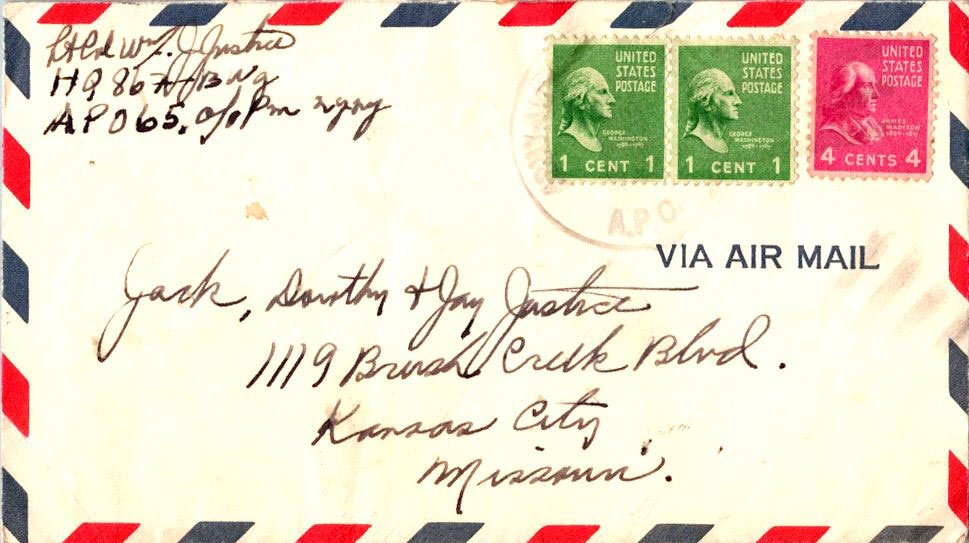 Lt Col Wm. J. Justice
HQ 86th Bwg
APO 65, c/o Pm ny ny
UNITED
STATES
POSTAGE
GEORGE
WASHINGTON
1789-1797
1 CENT 1
UNITED
STATES
POSTAGE
GEORGE
WASHINGTON
1789-1797
1 CENT 1
UNITED
STATES
POSTAGE
JAMES
MADISON
1809-1817
4 CENTS 4
A.P.O.
VIA AIR MAIL
Jack, Dorothy & Jay Justice
1119 Brush Creek Blvd.
Kansas City
Missouri.